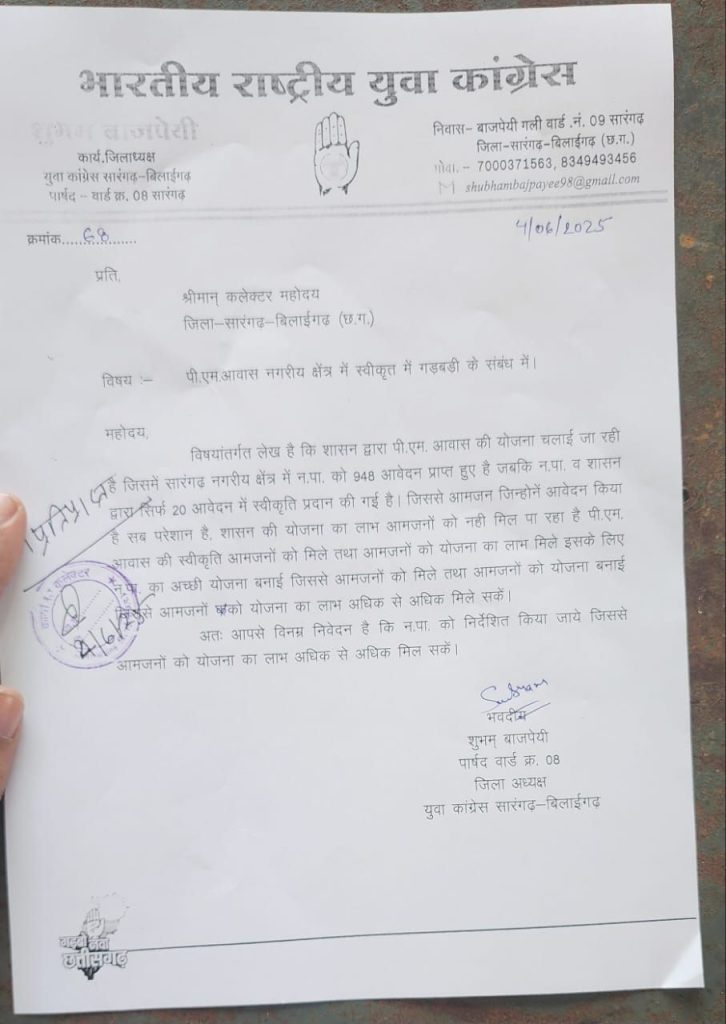 भारतीय राष्ट्रीय युवा कांग्रेस
शुभम बाजपेयी
कार्य.जिलाध्यक्ष
युवा कांग्रेस सारंगढ़–बिलाईगढ़
पार्षद – वार्ड क्र. 08 सारंगढ़
निवास– बाजपेयी गली वार्ड .नं. 09 सारंगढ़
जिला–सारंगढ़–बिलाईगढ़ (छ.ग.)
मोबा. – 7000371563, 8349493456
shubhambajpayee98@gmail.com
क्रमांक.....68.......
4/06/2025
प्रति,
श्रीमान् कलेक्टर महोदय
जिला–सारंगढ़–बिलाईगढ़ (छ.ग.)
विषय :– पी.एम.आवास नगरीय क्षेंत्र में स्वीकृत में गड़बडी के संबंध में।
महोदय,
विषयांतर्गत लेख है कि शासन द्वारा पी.एम. आवास की योजना चलाई जा रही
है जिसमें सारंगढ़ नगरीय क्षेंत्र में न.पा. को 948 आवेदन प्राप्त हुए है जबकि न.पा. व शासन
द्वारा सिर्फ 20 आवेदन में स्वीकृति प्रदान की गई है। जिससे आमजन जिन्होनें आवेदन किया
है सब परेशान है, शासन की योजना का लाभ आमजनों को नही मिल पा रहा है पी.एम.
आवास की स्वीकृति आमजनों को मिले तथा आमजनों को योजना का लाभ मिले इसके लिए
पा. का अच्छी योजना बनाई जिससे आमजनों को मिले तथा आमजनों को योजना बनाई
जिससे आमजनों को योजना का लाभ अधिक से अधिक मिले सकें।
अतः आपसे विनम्र निवेदन है कि न.पा. को निर्देशित किया जाये जिससे
आमजनों को योजना का लाभ अधिक से अधिक मिल सकें।
प्रतिप्राप्त
4/6/25
Subham
भवदीय
शुभम् बाजपेयी
पार्षद वार्ड क्र. 08
जिला अध्यक्ष
युवा कांग्रेस सारंगढ़–बिलाईगढ़
गढ़बो नवा
छत्तीसगढ़